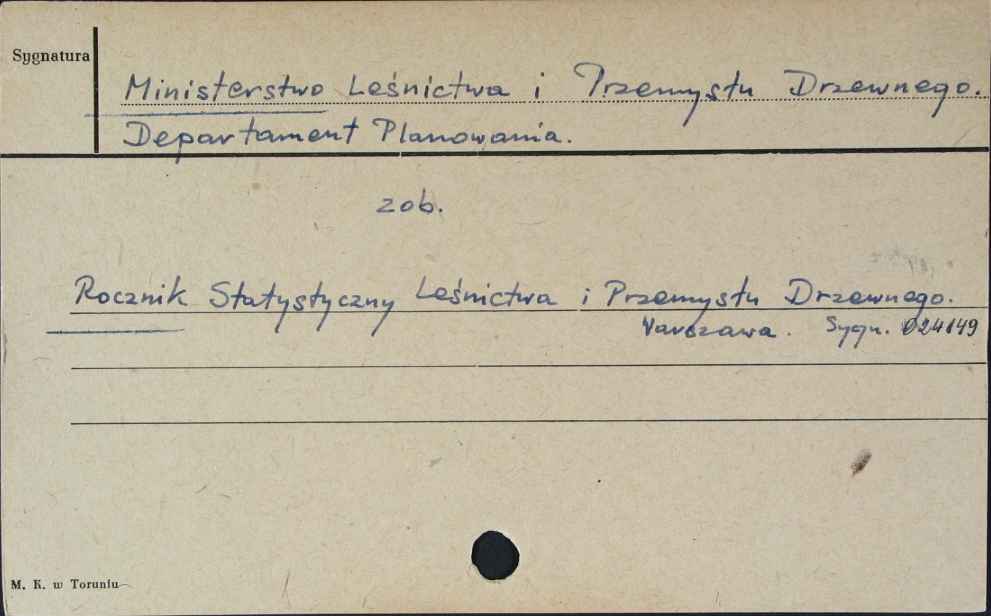 Sygnatura
Ministerstwo Leśnictwa i Przemysłu Drzewnego.
Departament Planowania.
zob.
Rocznik Statystyczny Leśnictwa i Przemysłu Drzewnego.
Warszawa. Sygn. 024149
M. K. w Toruniu